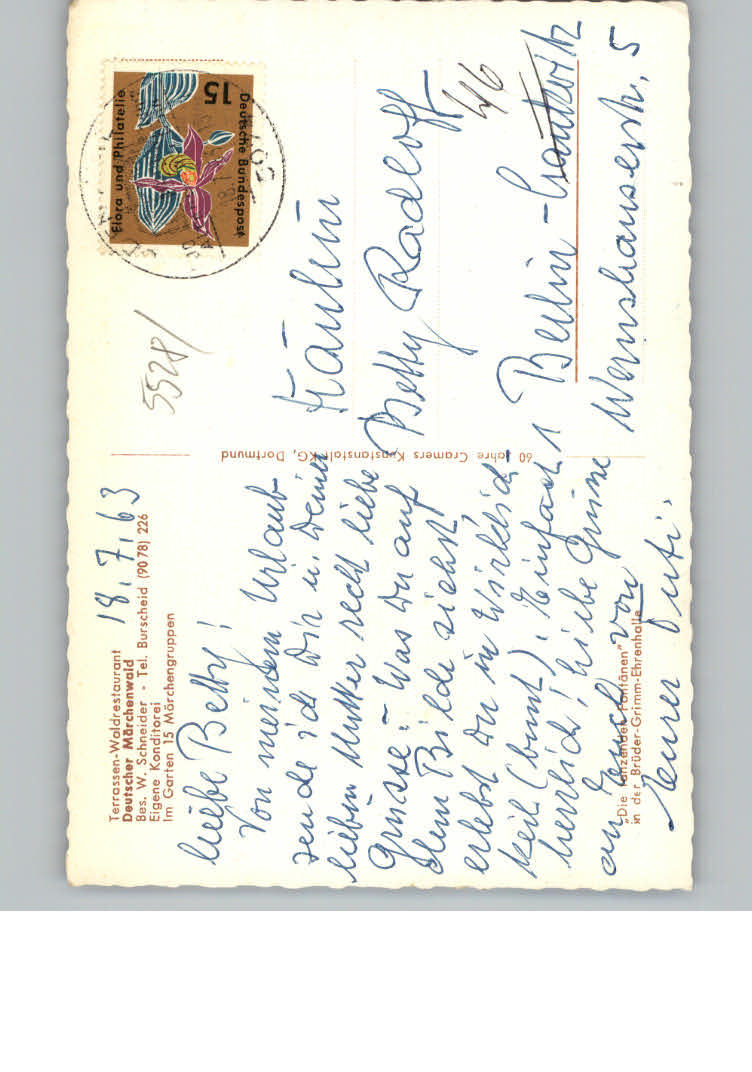 Terrassen-Waldrestaurant
Deutscher Märchenwald
Bes. W. Schneider - Tel. Burscheid (90 78) 226
Eigene Konditorei
Im Garten 15 Märchengruppen
18.7.63
Liebe Betty!
Von meinem Urlaub
sende ich Dir u. Deiner
lieben Mutter recht liebe
Grüsse. - Was Du auf
dem Bilde siehst
erlebst Du in Wirklich
keit (bunt). Einfach
herrlich! Liebe Grüsse
an Euch von
Eurer Guti.
"Die tanzenden Fontänen"
in der Brüder-Grimm-Ehrenhalle
60 Jahre Cramers Kunstanstalt KG, Dortmund
Deutsche Bundespost
15
Flora und Philatelie
5528/
Fräulein
Betty Radloff
46
1 Berlin-Lankwitz
Wernshauserstr. 5